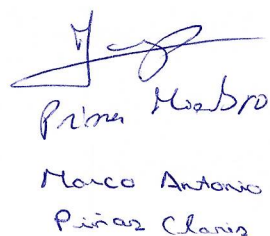 Primer Miembro
Marco Antonio
Piñas Claris